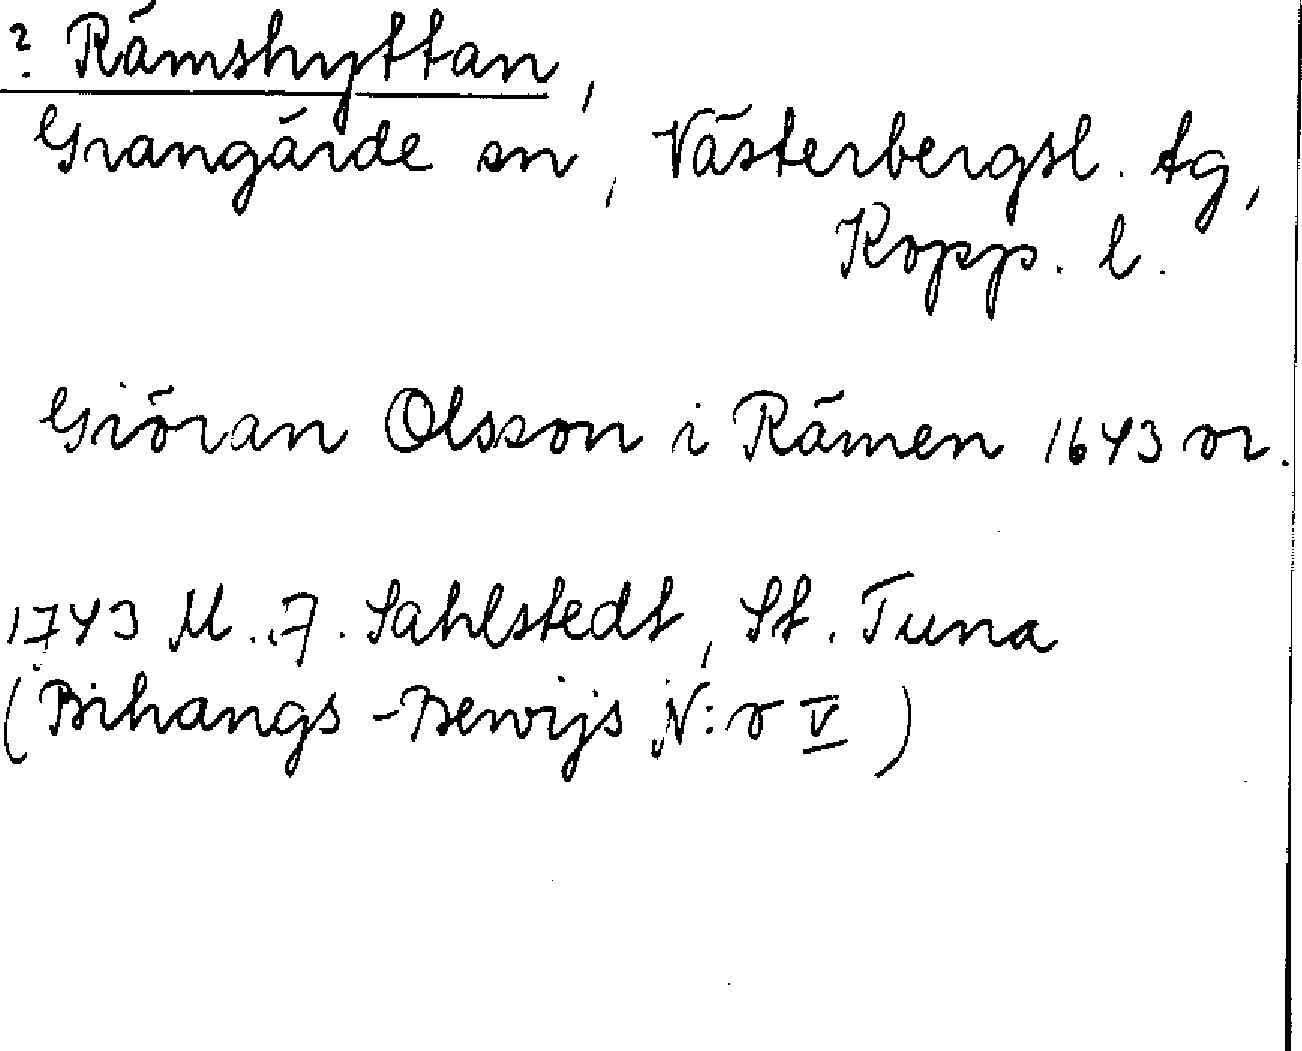 ? Rämshyttan,
Grangärde sn, Västerbergsl. tg,
Kopp. l.
Giöran Olsson i Rämen 1643 or.
1743 M. F. Sahlstedt, St. Tuna
(Bihangs-Bewijs N:o V)